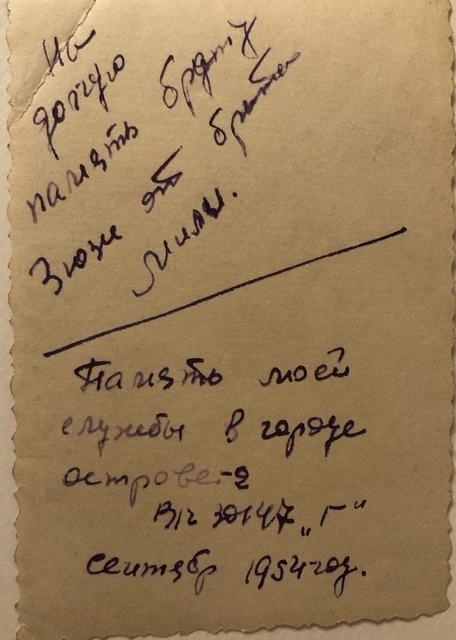 На
долгую
память брату
Зюзи от брата
Милы.
Память моей
службы в городе
острове-2
В/ч 30147 „Г“
сентябр 1954 год.